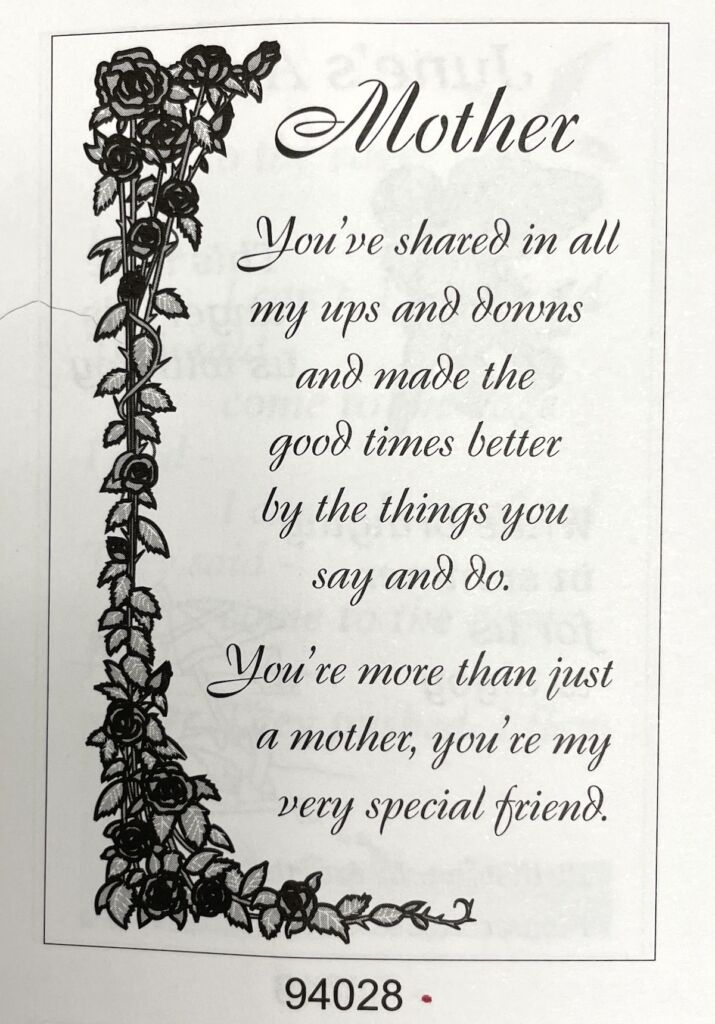 Mother
You've shared in all
my ups and downs
and made the
good times better
by the things you
say and do.
You're more than just
a mother, you're my
very special friend.
94028